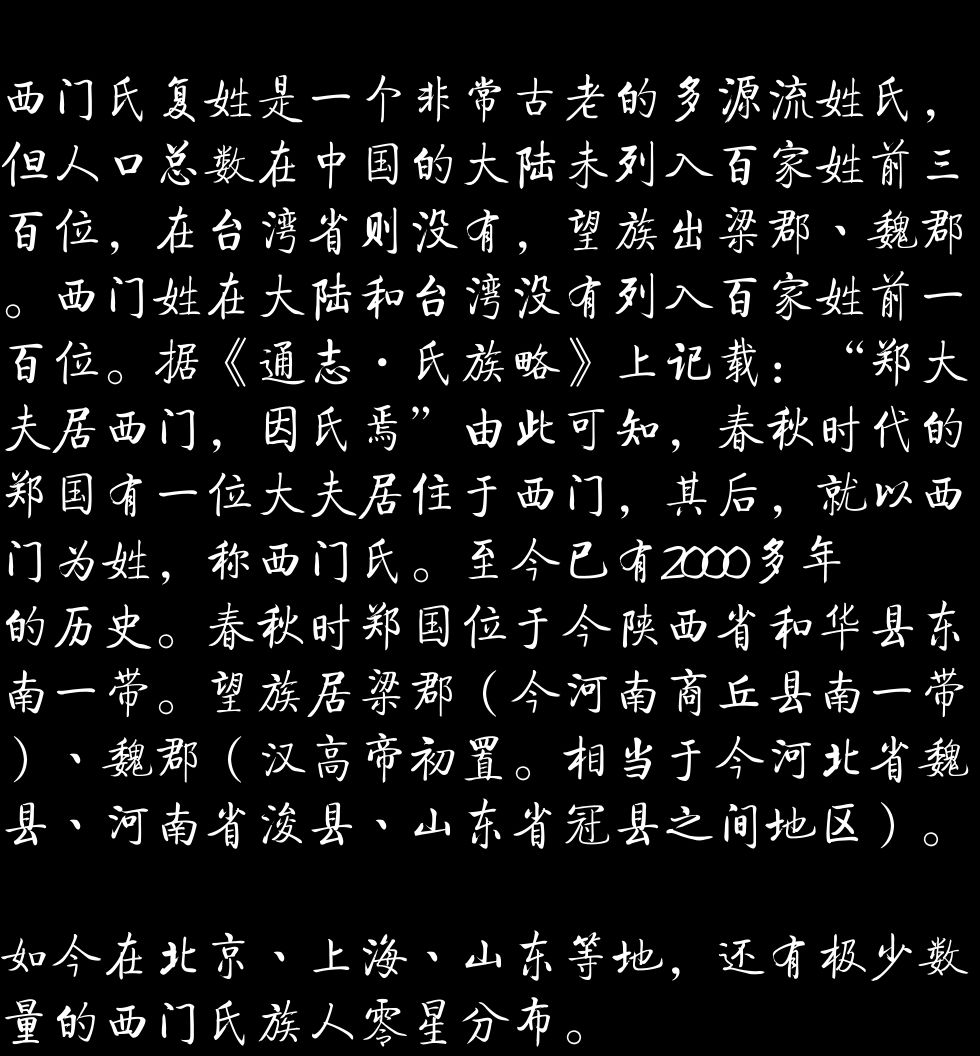 西门氏复姓是一个非常古老的多源流姓氏，
但人口总数在中国的大陆未列入百家姓前三
百位，在台湾省则没有，望族出梁郡、魏郡
。西门姓在大陆和台湾没有列入百家姓前一
百位。据《通志·氏族略》上记载：“郑大
夫居西门，因氏焉”由此可知，春秋时代的
郑国有一位大夫居住于西门，其后，就以西
门为姓，称西门氏。至今已有2000多年
的历史。春秋时郑国位于今陕西省和华县东
南一带。望族居梁郡（今河南商丘县南一带
）、魏郡（汉高帝初置。相当于今河北省魏
县、河南省浚县、山东省冠县之间地区）。
如今在北京、上海、山东等地，还有极少数
量的西门氏族人零星分布。